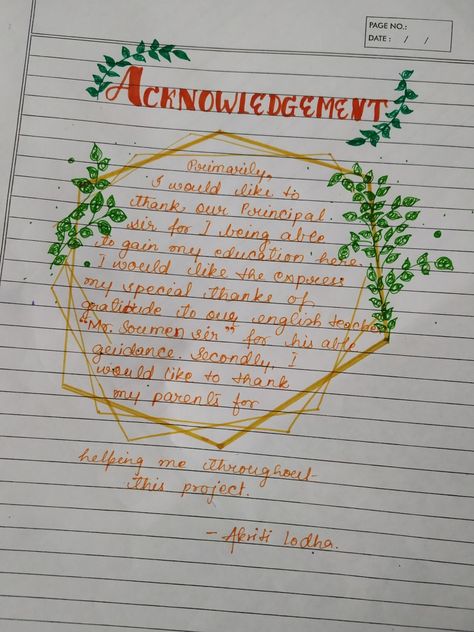 PAGE NO.:
DATE: / /
ACKNOWLEDGEMENT
Primarily,
I would like to
thank our Principal
sir for I being able
to gain my education here.
I would like the express
my special thanks of
gratitude to our english teacher
"Mr. Soumen sir" for his able
guidance. Secondly, I
would like to thank
my parents for
helping me throughout
this project.
- Akriti Lodha.